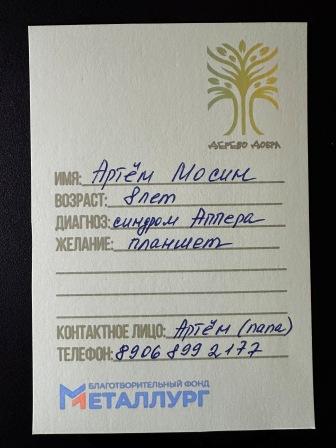 ДЕРЕВО ДОБРА
ИМЯ: Артём Мосин
ВОЗРАСТ: 8 лет
ДИАГНОЗ: синдром Аппера
ЖЕЛАНИЕ: планшет
КОНТАКТНОЕ ЛИЦО: Артём (папа)
ТЕЛЕФОН: 8906 899 2177
БЛАГОТВОРИТЕЛЬНЫЙ ФОНД
МЕТАЛЛУРГ